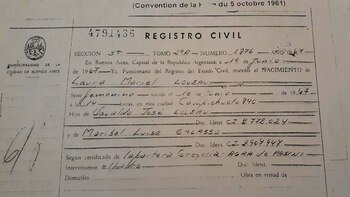 (Convention de la H du 5 octobre 1961)
4791436
REGISTRO CIVIL
MUNICIPALIDAD DE LA
CIUDAD DE BUENOS AIRES
SECCION 5ª TOMO 2º B NUMERO 1876
En Buenos Aires, Capital de la República Argentina, a 19 de Junio
de 1967 Yo, Funcionario del Registro del Estado Civil, inscribo el NACIMIENTO de
Laura Mariel
Sexo femenino el 16 de Junio de 1967
a 14 horas en esta ciudad
Hijo de Osvaldo José
Doc. Ident. CI 2.772.024
y Marisol Luisa GALASSO
Doc. Ident. CI 2967447
Según certificado de la partera Gregoria
Interviniente el padre Doc. Ident.
Domicilio Obra en virtud de